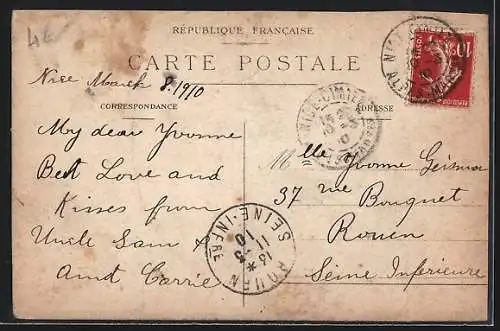 4E
RÉPUBLIQUE FRANÇAISE
CARTE POSTALE
Nice March 8. 1910
CORRESPONDANCE
ADRESSE
My dear Yvonne
Best Love and
Kisses from
Uncle Sam &
Aunt Carrie
Mlle Yvonne
37 rue Bouquet
Rouen
Seine Inférieure
NICE-CIMIEZ
ROUEN
SEINE-INFRE
13 *
11 -3
10
10